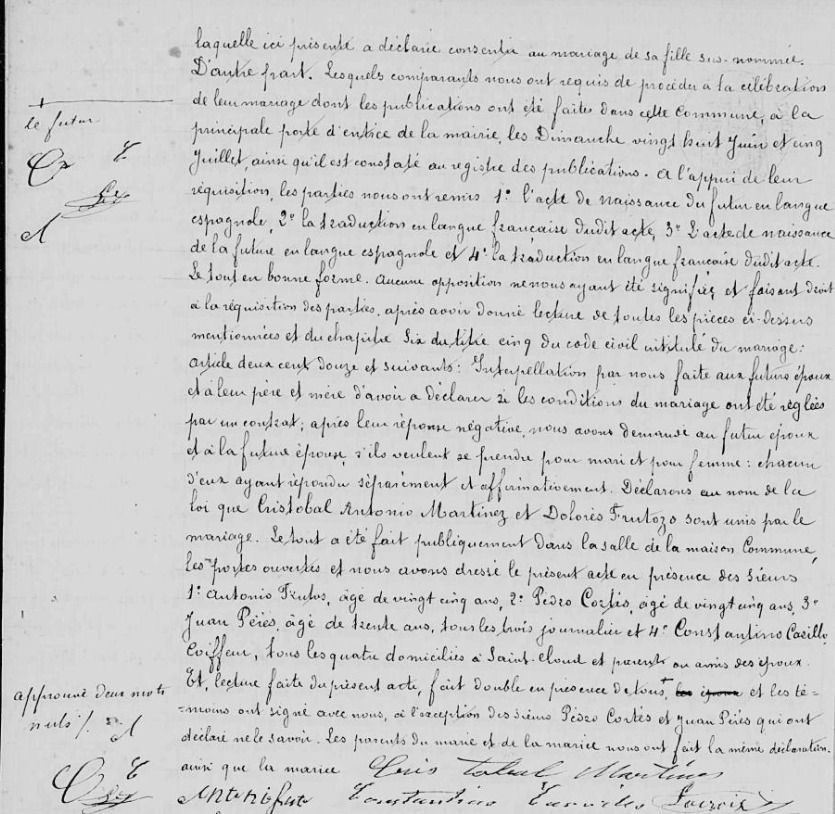 laquelle ici présente a déclarée consentir au mariage de sa fille sus-nommée.
D'autre part. Lesquels comparants nous ont requis de procéder à la célébration
de leur mariage dont les publications ont été faites dans cette Commune, à la
principale porte d'entrée de la mairie, les Dimanche vingt huit Juin et cinq
Juillet, ainsi qu'il est constaté au registre des publications. A l'appui de leur
réquisition, les parties nous ont remis 1° l'acte de naissance du futur en langue
espagnole, 2° la traduction en langue française dudit acte, 3° L'acte de naissance
de la future en langue espagnole et 4° la traduction en langue française dudit acte.
Le tout en bonne forme. Aucune opposition ne nous ayant été signifiée et faisant droit
à la réquisition des parties, après avoir donné lecture de toutes les pièces ci-dessus
mentionnées et du chapitre six du titre cinq du code civil intitulé du mariage:
article deux cent douze et suivants: Interpellation par nous faite aux futurs époux
et à leur père et mère d'avoir à déclarer si les conditions du mariage ont été réglées
par un contrat; après leur réponse négative, nous avons demandé au futur époux
et à la future épouse, s'ils veulent se prendre pour mari et pour femme: chacun
d'eux ayant répondu séparément et affirmativement. Déclarons au nom de la
loi que Cristobal Antonio Martinez et Dolorès Frutozo sont unis par le
mariage. Le tout a été fait publiquement dans la salle de la maison Commune,
les portes ouvertes et nous avons dressé le présent acte en présence des sieurs
1° Antonio Frutos, âgé de vingt cinq ans, 2° Pédro Cortés, âgé de vingt cinq ans, 3°
Juan Pérés, âgé de trente ans, tous les trois journalier et 4° Constantino Carillo
Coiffeur, tous les quatre domiciliés à Saint-Cloud et parents ou amis des époux.
Et, lecture faite du présent acte, fait double en présence de tous, et les té-
-moins ont signé avec nous, à l'exception des sieurs Pédro Cortés et Juan Pérés qui ont
déclaré ne le savoir. Les parents du marié et de la mariée nous ont fait la même déclaration.
ainsi que la mariée Cristobal Martines
Antonio Constantino Lacroix
le futur
approuvé deux mots
nuls